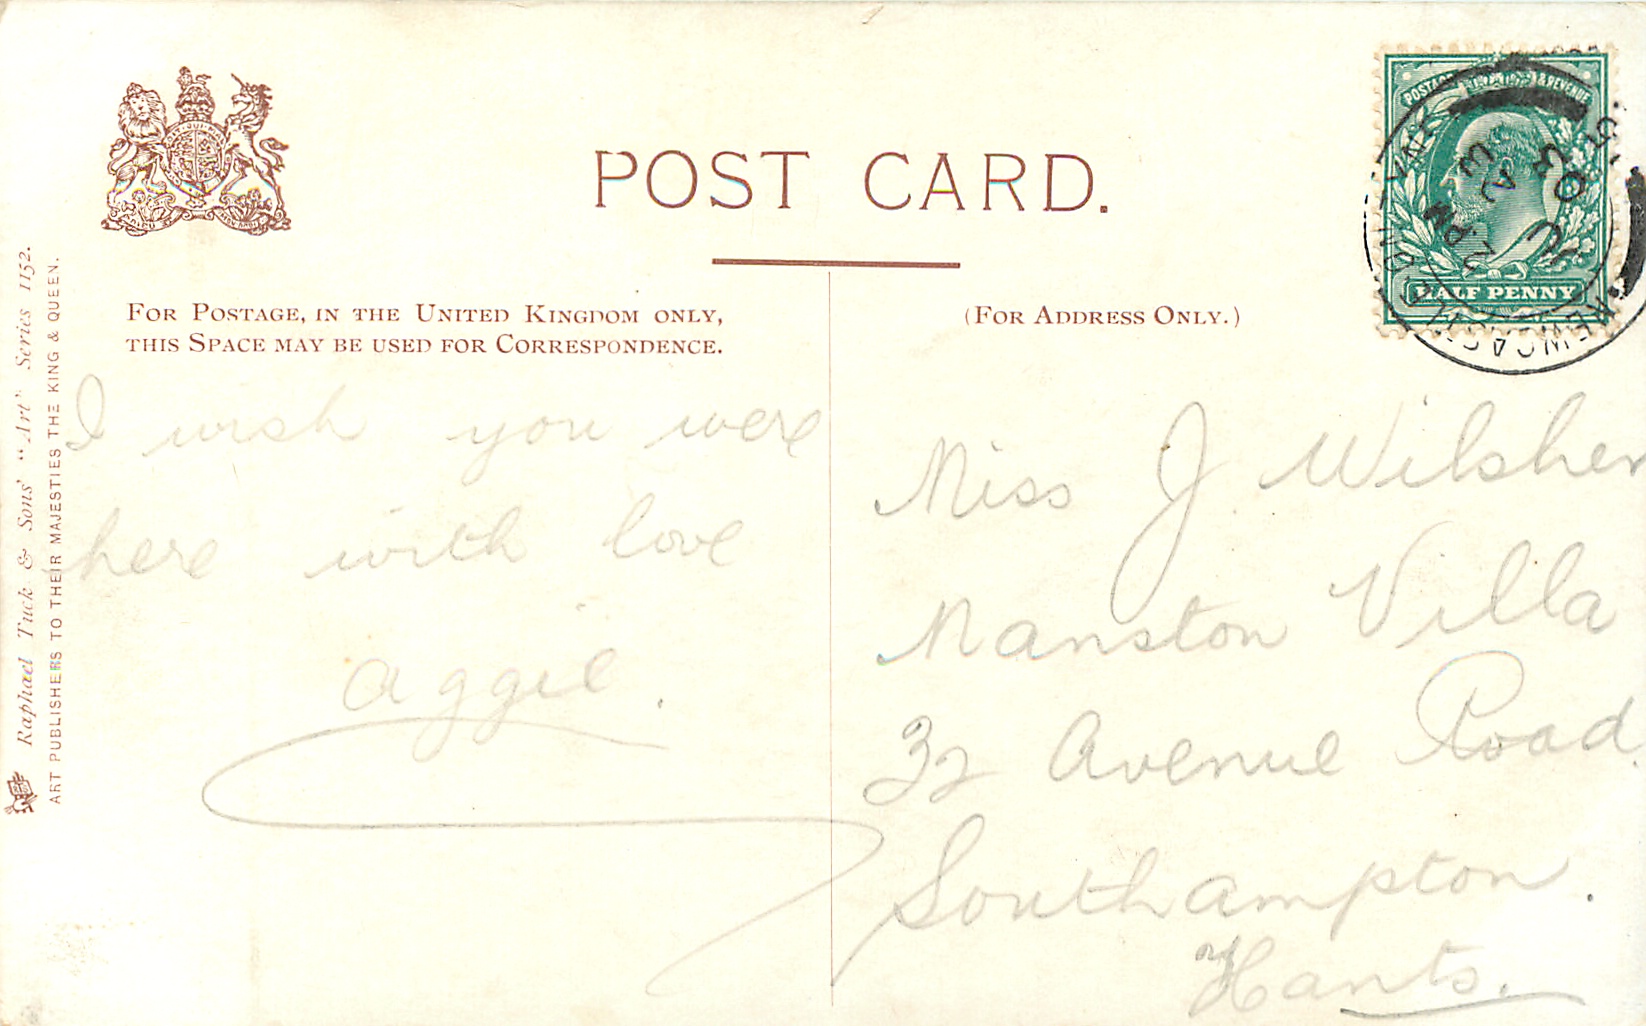 POST CARD.
FOR POSTAGE, IN THE UNITED KINGDOM ONLY,
THIS SPACE MAY BE USED FOR CORRESPONDENCE.
(FOR ADDRESS ONLY.)
HALF PENNY
Raphael Tuck & Sons' "Art" Series 1152.
ART PUBLISHERS TO THEIR MAJESTIES THE KING & QUEEN.
I wish you were
here with love
Aggie.
Miss J Wilsher
Manston Villa
32 Avenue Road
Southampton.
Hants.